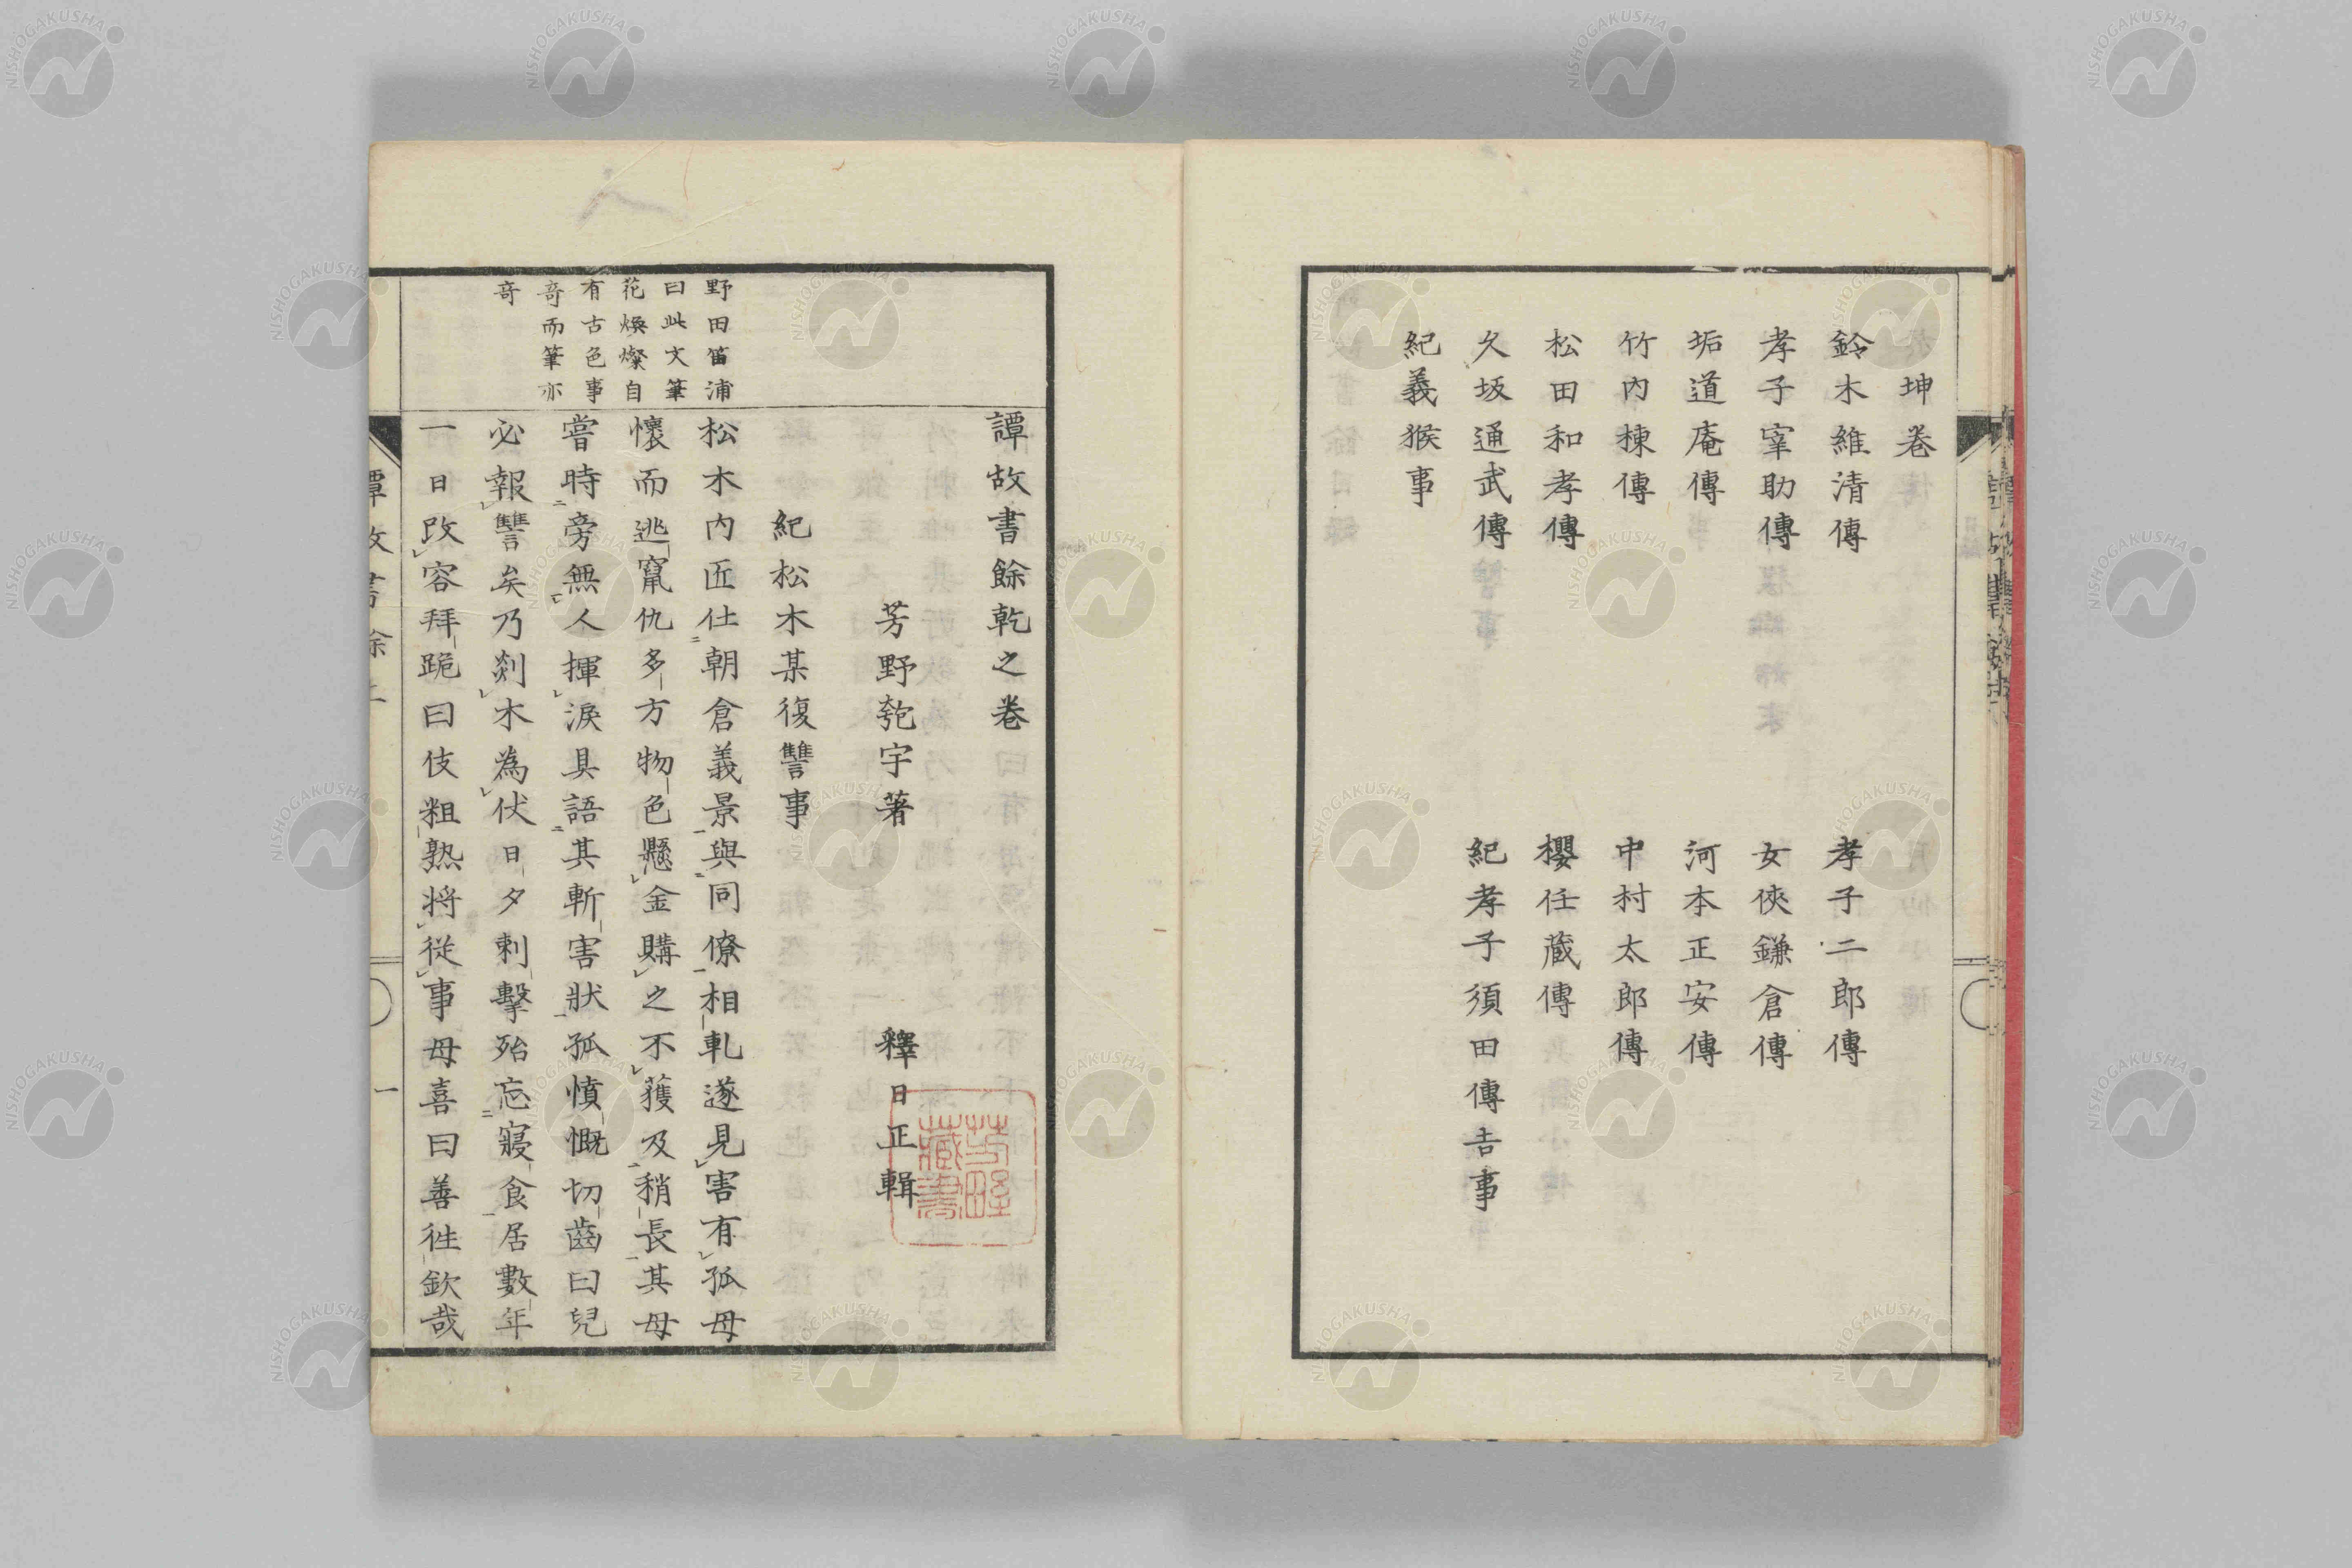 坤卷
鈴木維清傳
孝子二郎傳
孝子宰助傳
女俠鎌倉傳
垢道庵傳
河本正安傳
竹內棟傳
中村太郎傳
松田和孝傳
櫻任蔵傳
久坂通武傳
紀孝子須田傳吉事
紀義猴事
譚故書餘乾之卷
芳野匏宇著
釋日正輯
芳野
藏書
紀松木某復讐事
野田笛浦
曰此文筆
花煥燦自
有古色事
竒而筆亦
竒
松木内匠仕朝倉義景與同僚相軋遂見害有孤母
懷而逃竄仇多方物色懸金購之不獲及稍長其母
嘗時旁無人揮淚具語其斬害狀孤憤慨切齒曰兒
必報讐矣乃剡木為伏日夕刺擊殆忘寢食居數年
一日改容拜跪曰伎粗熟将従事母喜曰善徃欽哉
譚故書餘上
一
NISHOGAKUSHA